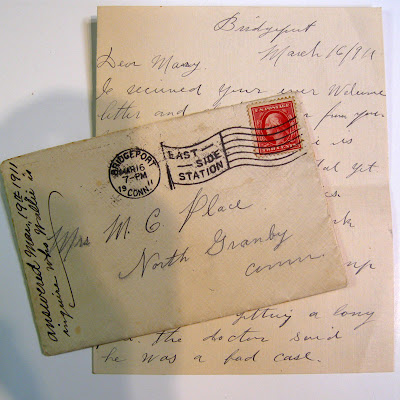 Bridgeport
March 16/911
Dear Mary.
I received your ever Welcome
letter and from your
is
yet
getting a long
the doctor said
he was a bad case.
BRIDGEPORT
MAR 16
7-PM
19 11
CONN.
EAST
SIDE
STATION
Mrs M. C. Place
North Granby
Conn
answered Mar 19th 1911
inquire who Willie is